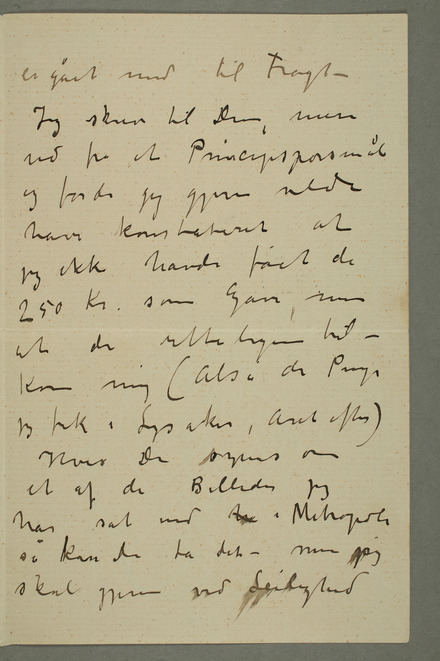 er gået med til Fragt –
Jeg skriver til Dem, mere
ud fra et Principspørsmål
og fordi jeg gjerne vilde
have konstateret at
jeg ikke havde fået de
250 Kr. som Gave, men
at de rettelig en til –
kom mig (Altså de Penge
jeg fik i Lysaker, Året efter)
Hvis De synes om
et af de Billeder jeg
har sat ned i Metropole
så kan De ta det – men jeg
skal gjerne ved Leilighed